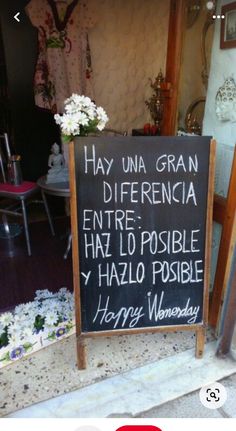 HAY UNA GRAN
DIFERENCIA
ENTRE:
HAZ LO POSIBLE
Y HAZLO POSIBLE
Happy Wenesday